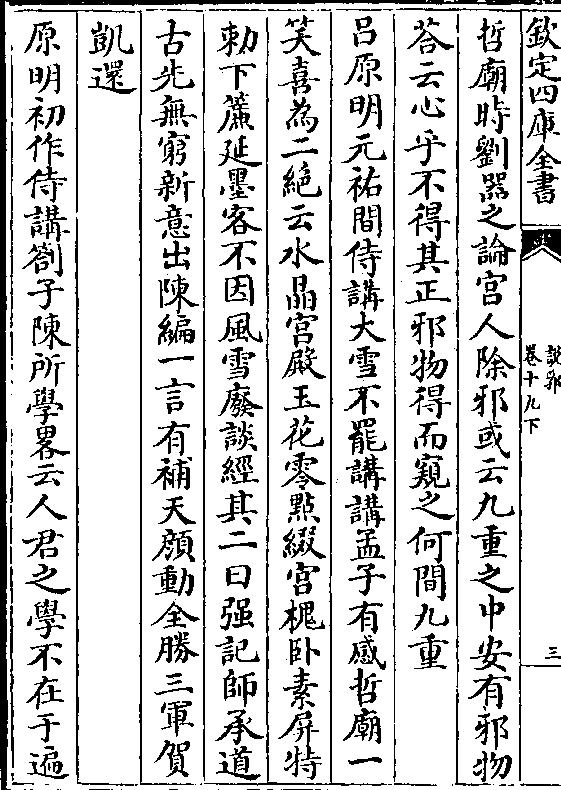 欽定四庫全書
說郛
卷十九下
三
哲廟時劉器之論宫人除邪或云九重之中安有邪物
荅云心乎不得其正邪物得而窺之何間九重
吕原明元祐間侍講大雪不罷講講孟子有感哲廟一
笑喜為二絶云水晶宫殿玉花零點綴宫槐卧素屏特
勅下簾延墨客不因風雪廢談經其二曰强記師承道
古先無窮新意出陳編一言有補天顔動全勝三軍賀
凱還
原明初作侍講劄子陳所學畧云人君之學不在于遍